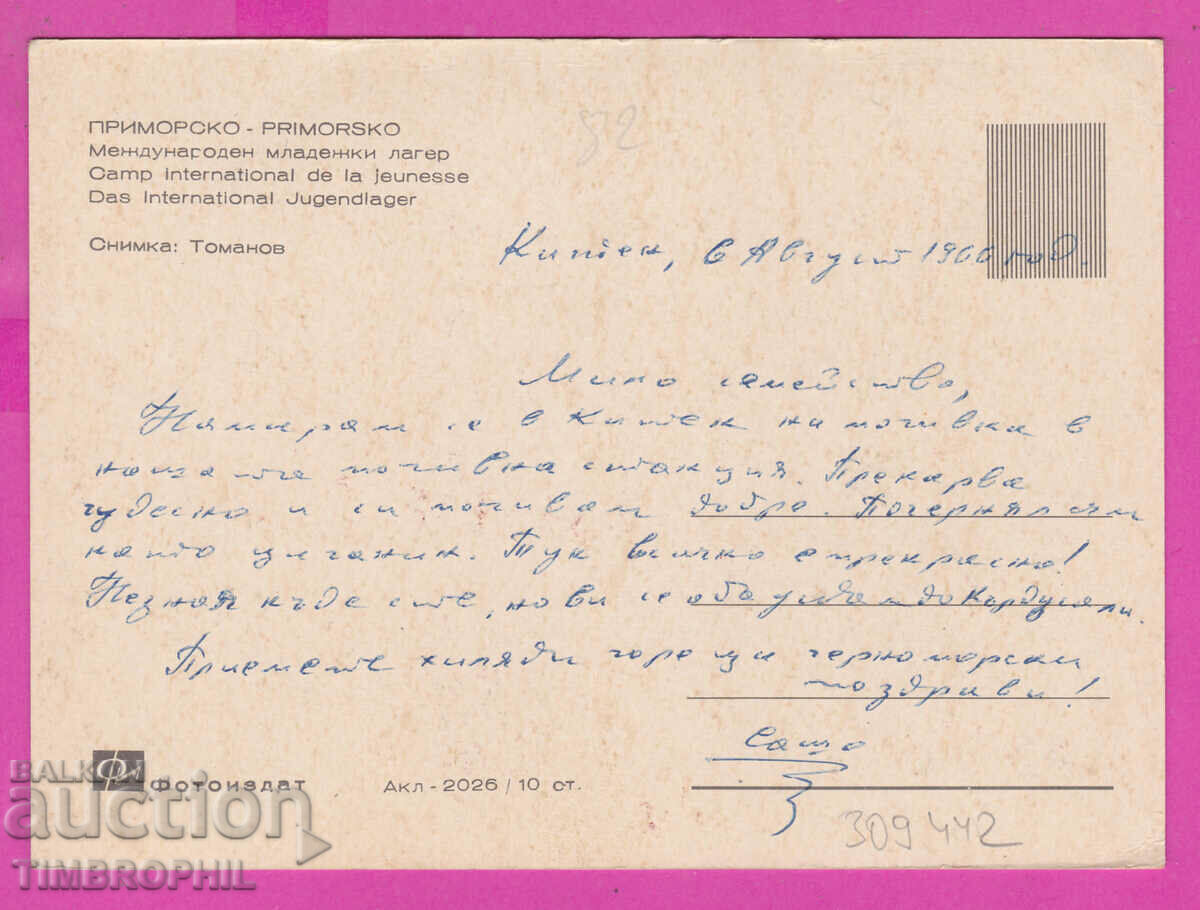 ПРИМОРСКО - PRIMORSKO
Международен младежки лагер
Camp international de la jeunesse
Das International Jugendlager
Снимка: Томанов
52
Китен, 6 Август 1966 год.
Мило семейство,
Намирам се в Китен на почивка в
нашата почивна станция. Прекарва
чудесно и си почивам добре. Почернял съм
като циганин. Тук всичко е прекрасно!
Незная къде сте, но ви се обаждам до Кърджали.
Приемете хиляди горещи черноморски
поздрави!
Сашо
Фотоиздат
Акл - 2026 / 10 ст.
309442
BALKAN
auction
TIMBROPHIL